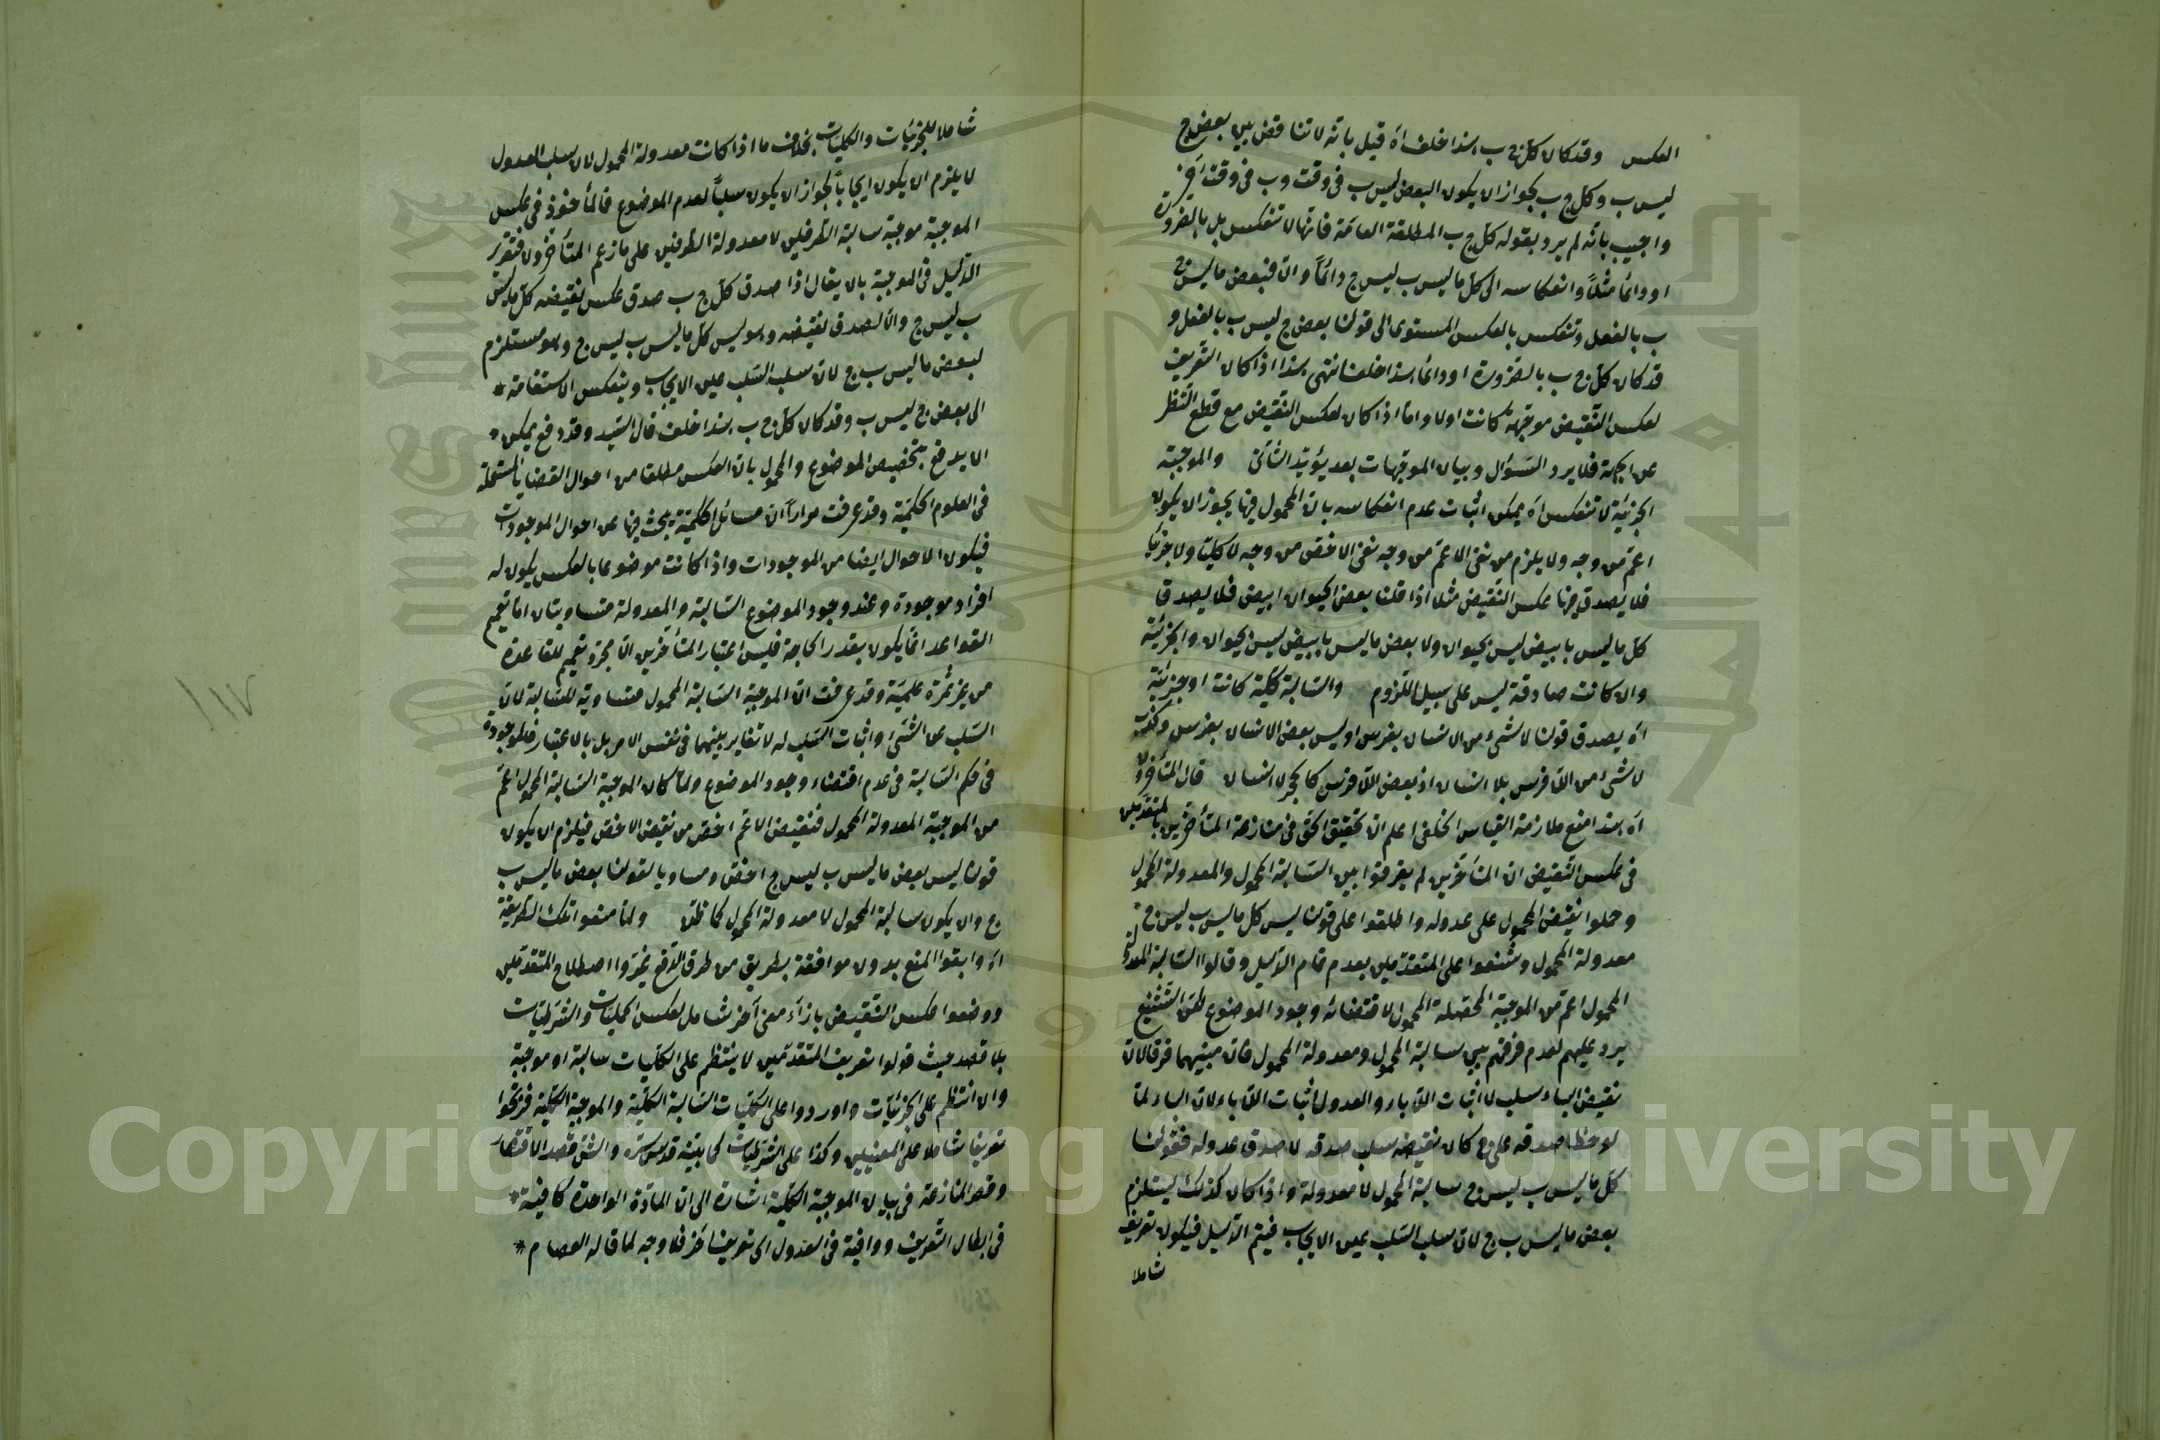 العكس وقد كان كل ج ب هذا خلف اه قيل بانه لا تناقض بين بعض ج
ليس ب وكل ج ب لجواز ان يكون البعض ليس ب في وقت وب في وقت آخر
واجيب بانه لم يرد بقوله كل ج ب المطلقة العامة فانها لا تنعكس بل بالضرورة
او دائما مثلا وانعكاسه الى كل ما ليس ب ليس ج دائما والا فبعض ما ليس
ب بالفعل وتنعكس بالعكس المستوى الى قولنا بعض ج ليس ب بالفعل و
قد كان كل ج ب بالضرورة او دائما هذا خلف انتهى هذا اذا كان التعريف
لعكس النقيض موجهة كانت اولا واما اذا كان لعكس النقيض مع قطع النظر
عن الجهة فلا يرد السؤال وبيان الموجهات بعد يؤيد الثاني والموجبة
الجزئية لا تنعكس اه يمكن اثبات عدم انعكاسه بان المحمول فيها يجوز ان يكون
اعم من وجه ولا يلزم من نفي الاعم من وجه نفي الاخص من وجه لا كليا ولا جزئيا
فلا يصدق فيها عكس النقيض مثلا اذا قلنا بعض الحيوان ابيض فلا يصدق
كل ما ليس بابيض ليس بحيوان ولا بعض ما ليس بابيض ليس بحيوان والجزئية
وان كانت صادقة ليس على سبيل اللزوم والسالبة كلية كانت او جزئية
اه يصدق قولنا لا شيء من الانسان بفرس او ليس بعض الانسان بفرس
لا شيء من اللافرس بلا انسان اذ بعض اللافرس كالحجر لا انسان قال المتأخرون
اه هذا منع ملازمة القياس الخلفي اعلم ان تحقيق الحق في منازعة المتأخرين للمتقدمين
في عكس النقيض ان المتأخرين لم يفرقوا بين السالبة المحمول والمعدولة المحمول
وحملوا نقيض المحمول على عدوله واطلقوا على قولنا ليس كل ما ليس ب ليس ج
معدولة المحمول وشنعوا على المتقدمين بعدم تمام الدليل وقالوا السالبة المعدولة
المحمول اعم من الموجبة المحصلة المحمول لاقتضائه وجود الموضوع لكن التشنيع
يرد عليهم لعدم فرقهم بين سالبة المحمول ومعدولة المحمول فان بينهما فرقا لان
نقيض الباء سلب لا اثبات اللاباء والعدول اثبات اللاباء لان الباء لما
لوحظ صدقه على ج كان نقيضه سلب صدقه لا صدق عدوله فقولنا
كل ما ليس ب ليس ج سالبة المحمول لا معدولة واذا كان كذلك يستلزم
بعض ما ليس ب ج لان سلب السلب عين الايجاب فيتم الدليل فيكون تعريف
شاملا
شاملا للجزئيات والكليات بخلاف ما اذا كانت معدولة المحمول لان سلب العدول
لا يلزم ان يكون ايجابا لجواز ان يكون سلبا لعدم الموضوع فالمأخوذ في عكس
الموجبة موجبة سالبة الطرفين لا معدولة الطرفين على ما زعم المتأخرون فتقرر
الدليل في الموجبة بان يقال اذا صدق كل ج ب صدق عكس نقيضه كل ما ليس
ب ليس ج والا لصدق نقيضه وهو ليس كل ما ليس ب ليس ج وهو مستلزم
لبعض ما ليس ب ج لان سلب السلب عين الايجاب وينعكس الاستقامة *
الى بعض ج ليس ب وقد كان كل ج ب هذا خلف قال السيد وقد دفع يمكن *
ان يدفع بتخصيص الموضوع والمحمول بان العكس مطلقا من احوال القضايا المستعملة
في العلوم الحكمية وقد عرفت مرارا ان مسائل الحكمة يبحث فيها عن احوال الموجودات
فيكون الاحوال ايضا من الموجودات واذا كانت موضوعا بالعكس يكون له
افراد موجودة وعند وجود الموضوع السالبة والمعدولة متساويتان اما تعميم
القواعد انما يكون بقدر الحاجة فليس اعتبار المتأخرين الا مجرد تعميم للقاعدة
من غير ثمرة علمية وقد عرفت ان الموجبة السالبة المحمول متساوية للسالبة لان
السلب عن الشيء واثبات السلب له لا تغاير بينهما في نفس الامر بل بالاعتبار
في حكم السالبة في عدم اقتضاء وجود الموضوع ولما كان الموجبة السالبة المحمول اعم
من الموجبة المعدولة المحمول فنقيض الاعم اخص من نقيض الاخص فيلزم ان يكون
قولنا ليس بعض ما ليس ب ليس ج اخص ومساويا لقولنا بعض ما ليس ب
ج وان يكون سالبة المحمول لا معدولة المحمول كما ظن ولما منعوا تلك الطريقة
اه وابقوا المنع بدون موافقة بطريق من طرق الدفع غيروا اصطلاح المتقدمين
ووضعوا عكس النقيض بازاء معنى آخر شامل لعكس الحمليات والشرطيات
بلا قصد حيث قولوا تعريف المتقدمين لا ينتظم على الكليات سالبة او موجبة
وان انتظم على الجزئيات واوردوا على الكليات السالبة الكلية والموجبة الكلية
تعريفا شاملا على المعنيين وكذا على الشرطيات كما بينه قدس سره
وقصر المنازعة في بيان الموجبة الكلية اشارة الى ان المادة الواحدة كافية *
في ابطال التعريف ووافية في العدول الى تعريف آخر فلا وجه لما قاله العصام *
١١٧
Copyright © King Saud University